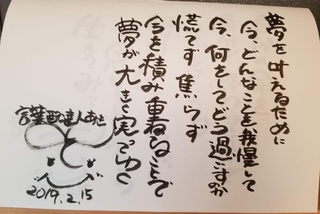 夢を叶えるために
今、どんなことを我慢して
今、何をしてどう過ごすか
慌てず 焦らず
今を積み重ねることで
夢が大きく実ってゆく
言葉配達人あと
2019.2.15